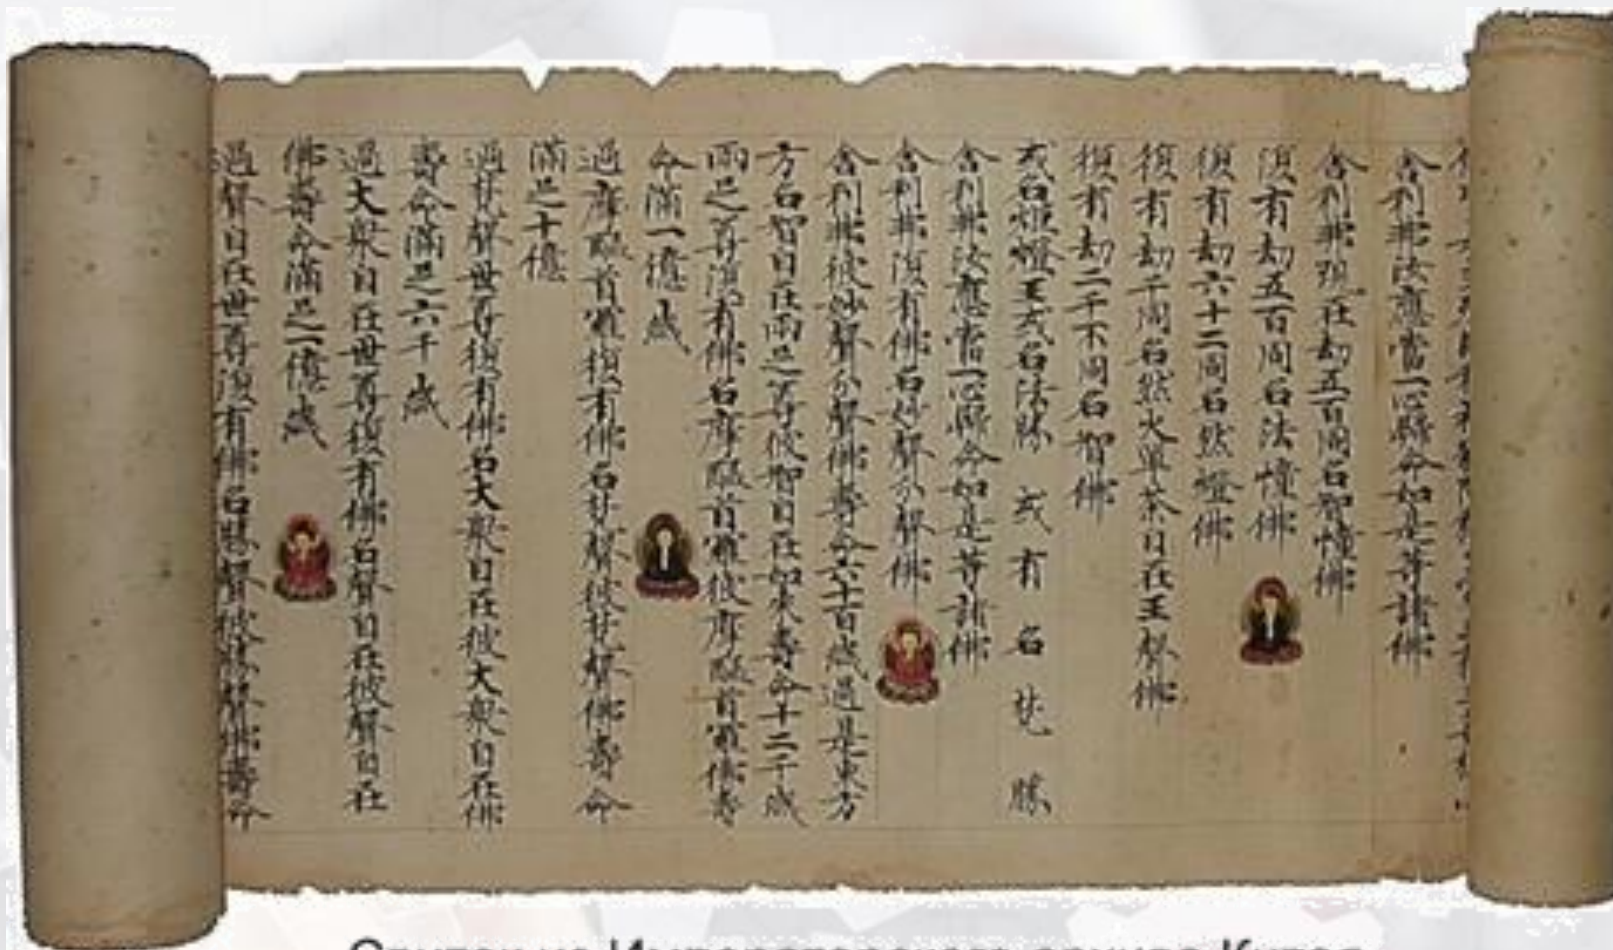 舍利弗汝應當一心歸命如是等諸佛
舍利弗現在劫五百同名智幢佛
復有劫五百同名法幢佛
復有劫六十二同名然燈佛
復有劫千同名然火單荼自在王聲佛
復有劫二千不同名智佛
或名燈王或名法勝 或有名梵勝
舍利弗汝應當一心歸命如是等諸佛
舍利弗復有佛名妙聲分聲佛
舍利弗彼妙聲分聲佛壽命六十百歲過是東方
方名智自在兩足尊彼智自在如來壽命十二千歲
兩足尊復有佛名摩醯首羅彼摩醯首羅佛壽
命滿一億歲
過摩醯首羅復有佛名梵聲彼梵聲佛壽命
滿足十億
過梵聲世尊復有佛名大衆自在彼大衆自在佛
壽命滿足六千歲
過大衆自在世尊復有佛名聲自在彼聲自在
佛壽命滿足一億歲
過聲自在世尊復有佛名勝聲彼勝聲佛壽命
Свиток из Императорского архива Китая